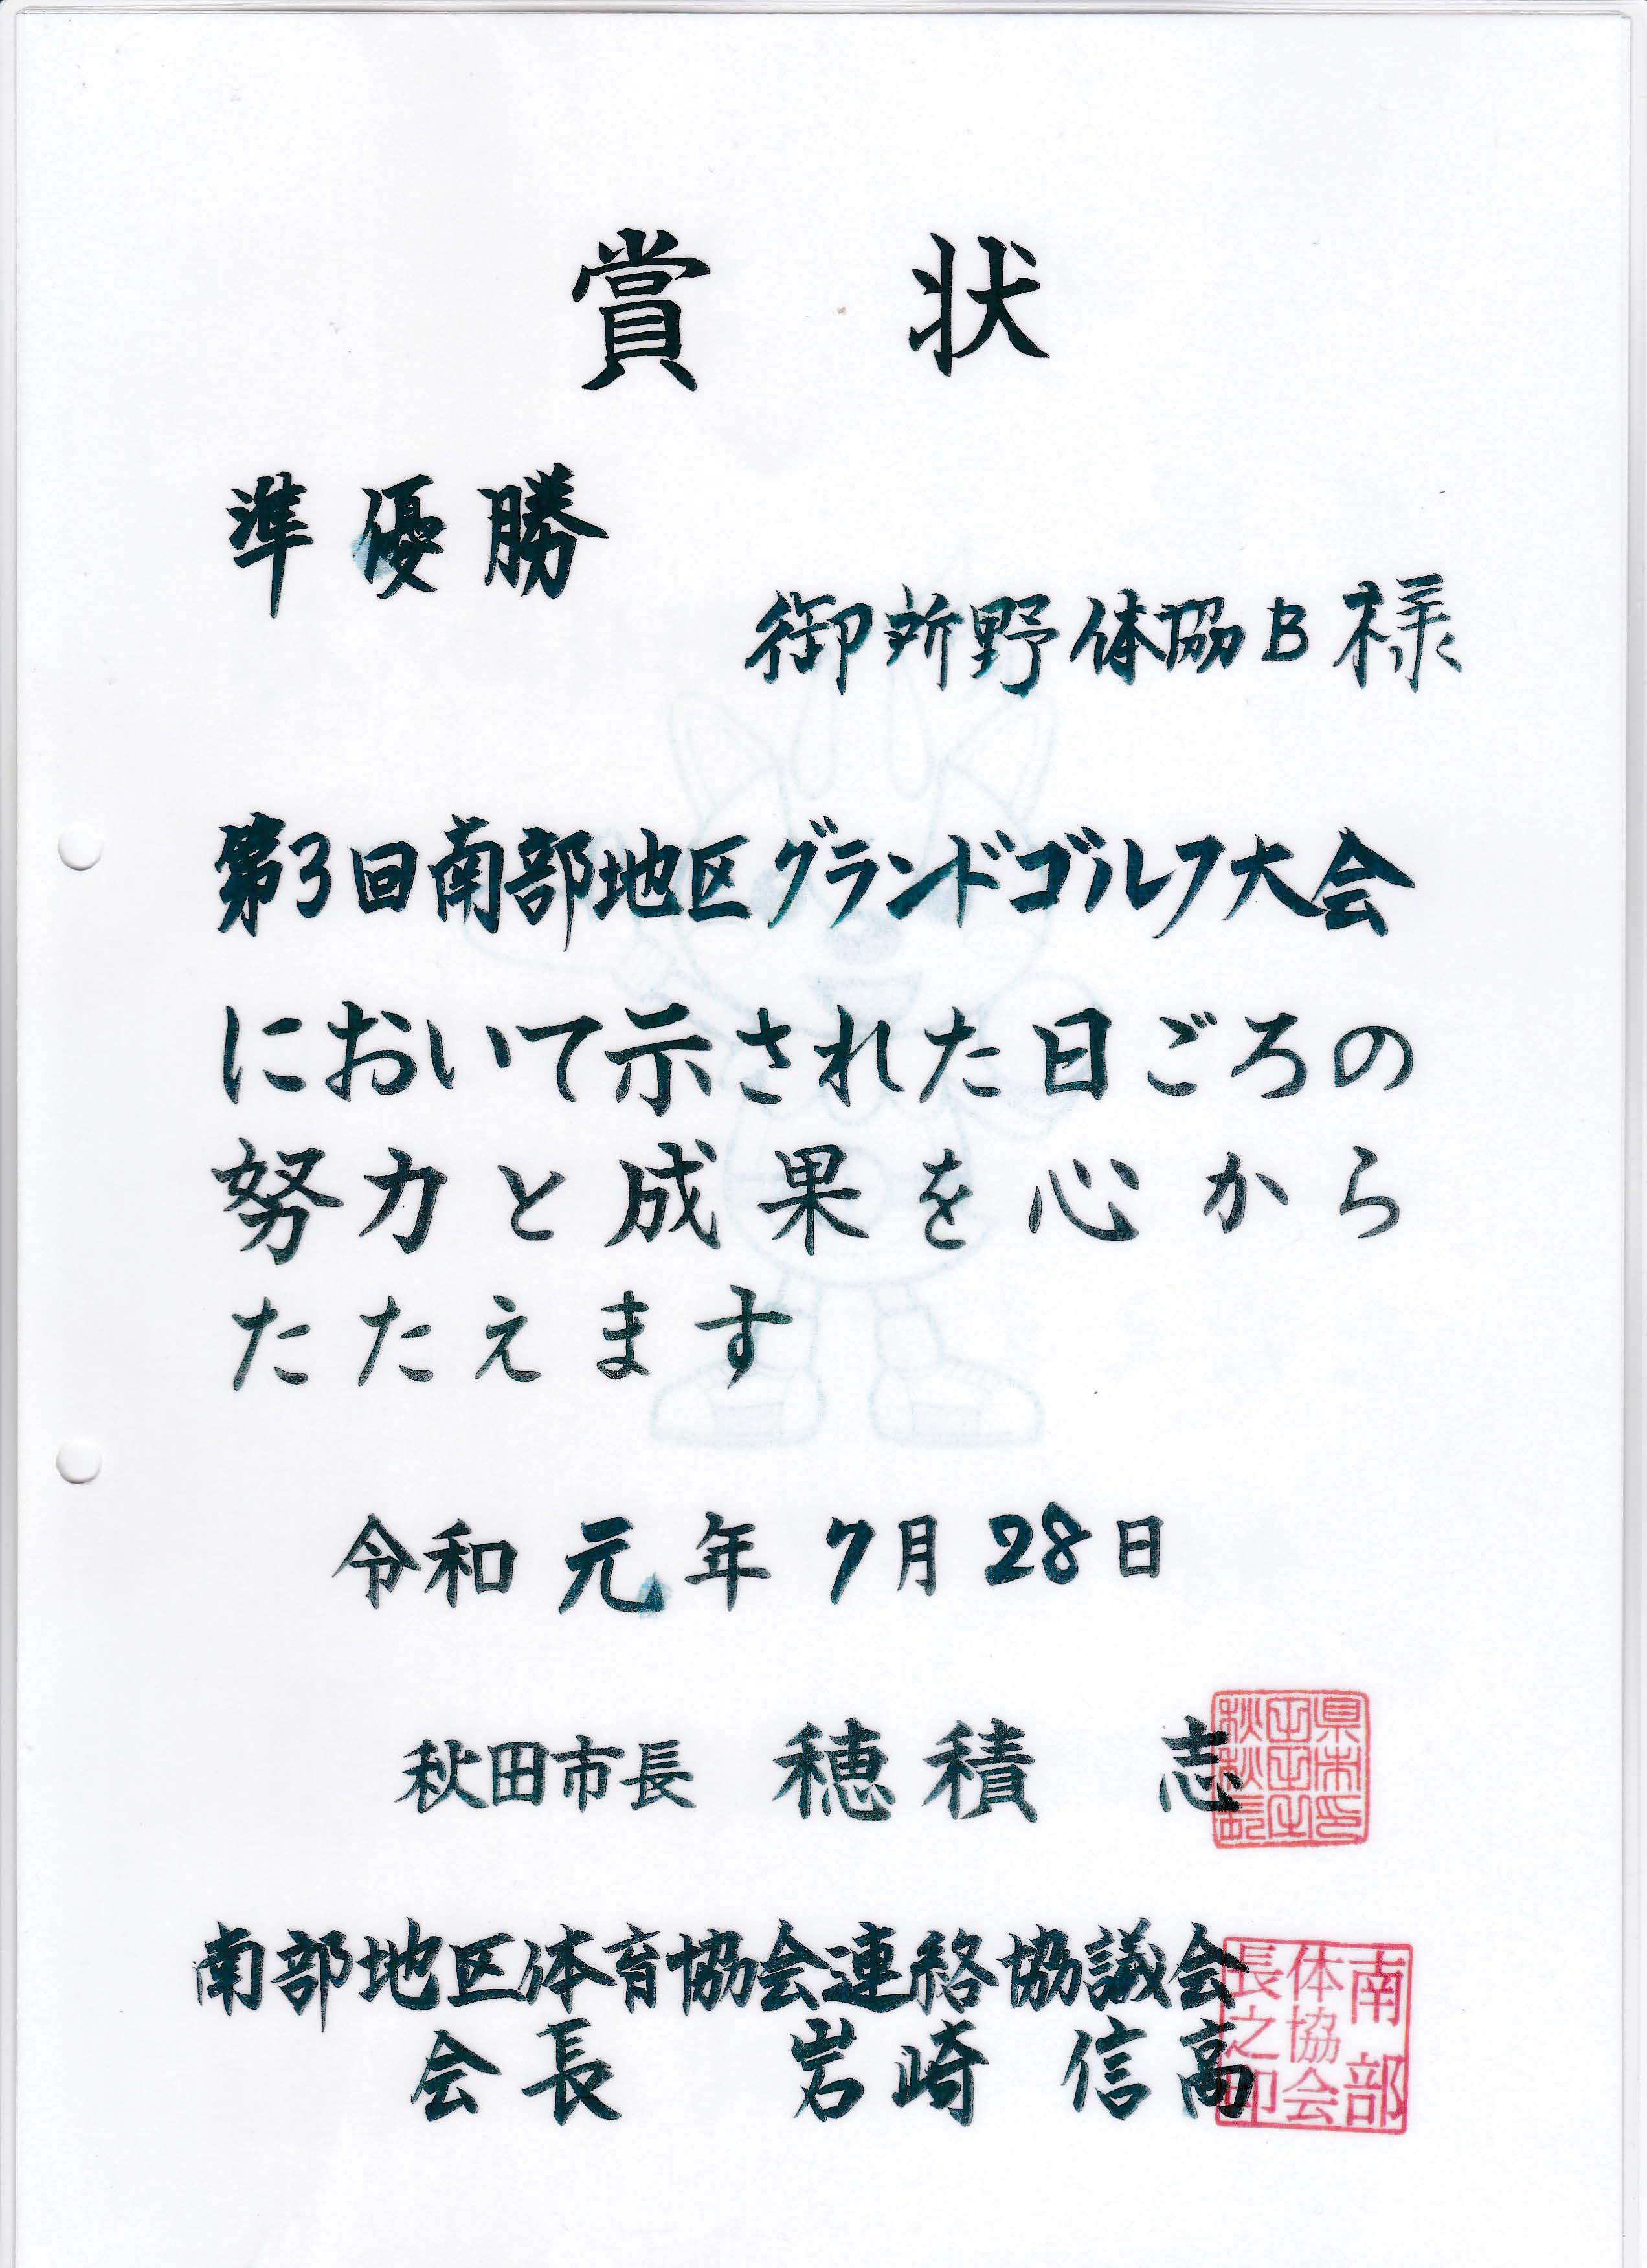 賞状
準優勝
御所野体協B様
第3回南部地区グランドゴルフ大会
において示された日ごろの
努力と成果を心から
たたえます
令和元年7月28日
秋田市長 穂積 志
南部地区体育協会連絡協議会
会長 岩崎 信高
南部
体協会
長之印